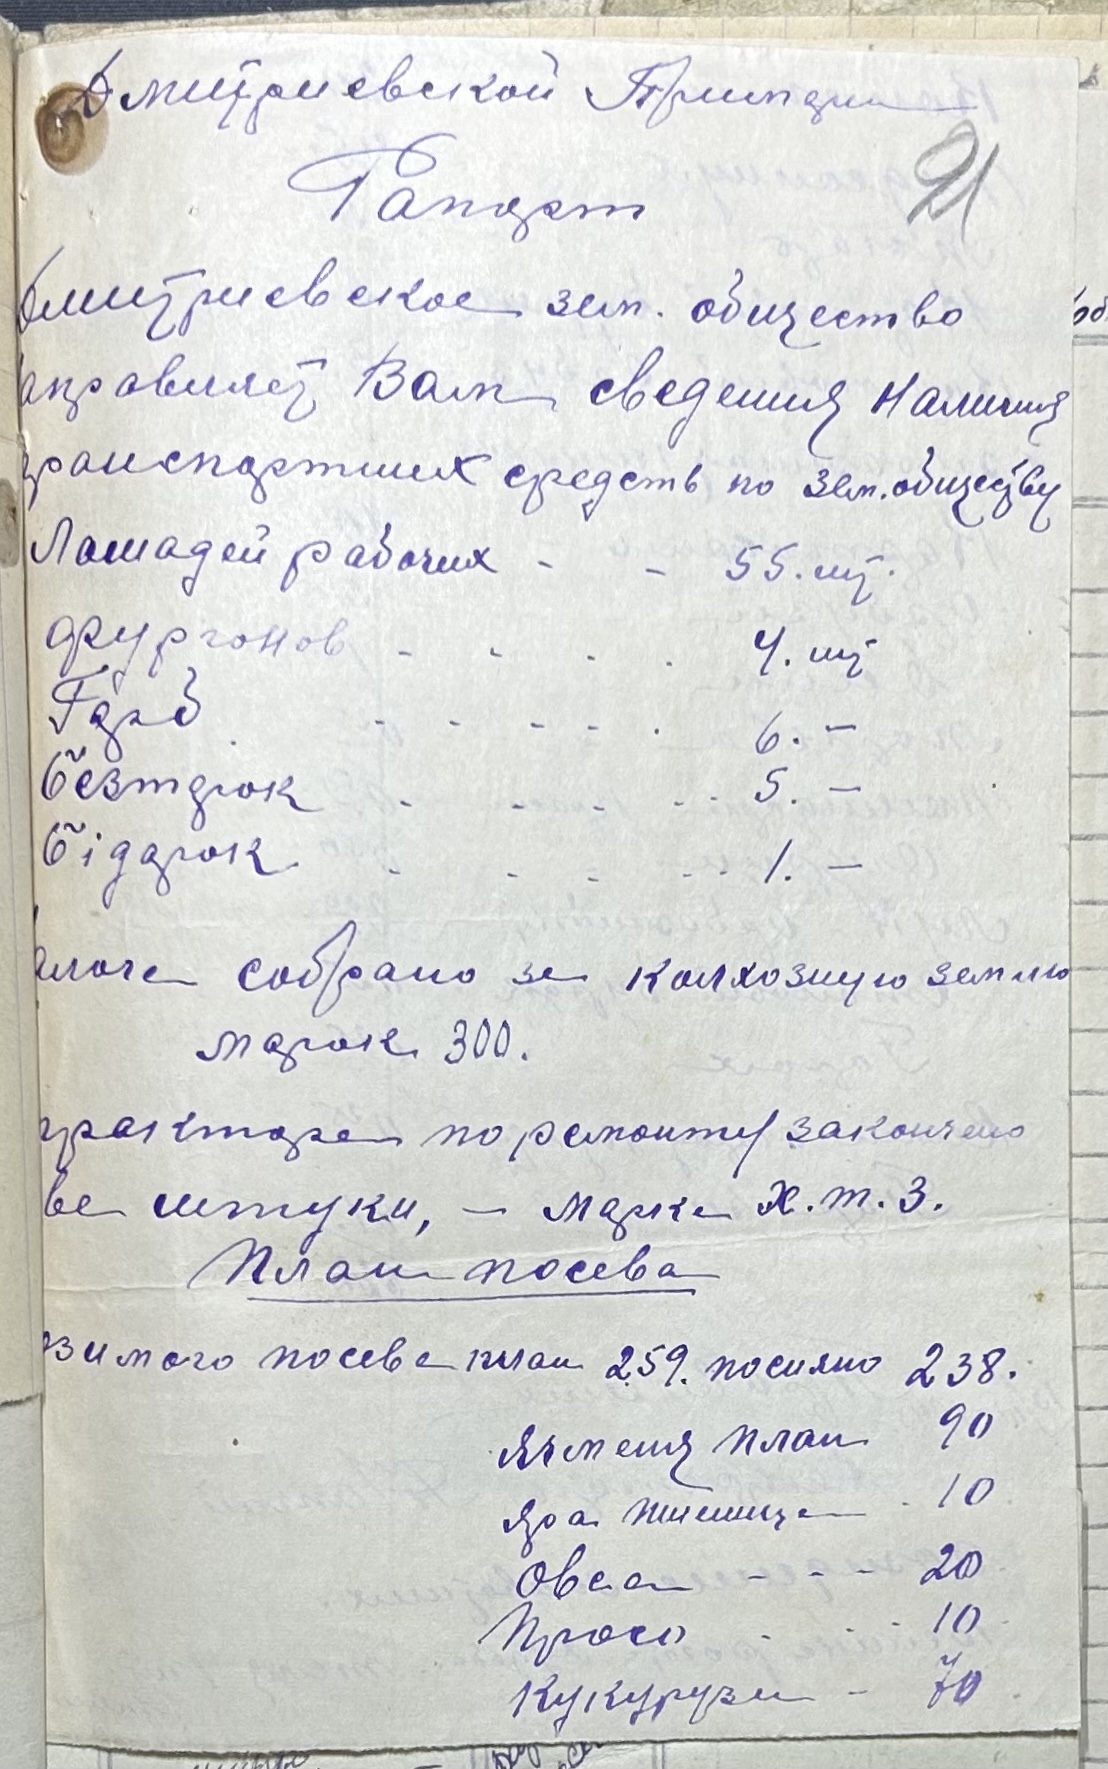 Дмитриевской
21
Рапорт
Дмитриевское зем. общество
аправляет Вам сведения Наличия
ранспортних средств по зем. обществу
Лошадей рабочих - - 55. шт.
фургонов - - - . 4. шт
Гарб - - - - . 6. —
безтарок - - - - .. 5. —
бідарок - - - .. 1. —
собрано за колхозную землю
марок 300.
трактора по ремонту закончено
ве штуки, — марка Х.Т.З.
План посева
зимого посева план 259. посияно 238.
Ячменя план 90
Яра пшеница 10
Овса - - - 20
Просо . - .. 10
Кукуруза - 70